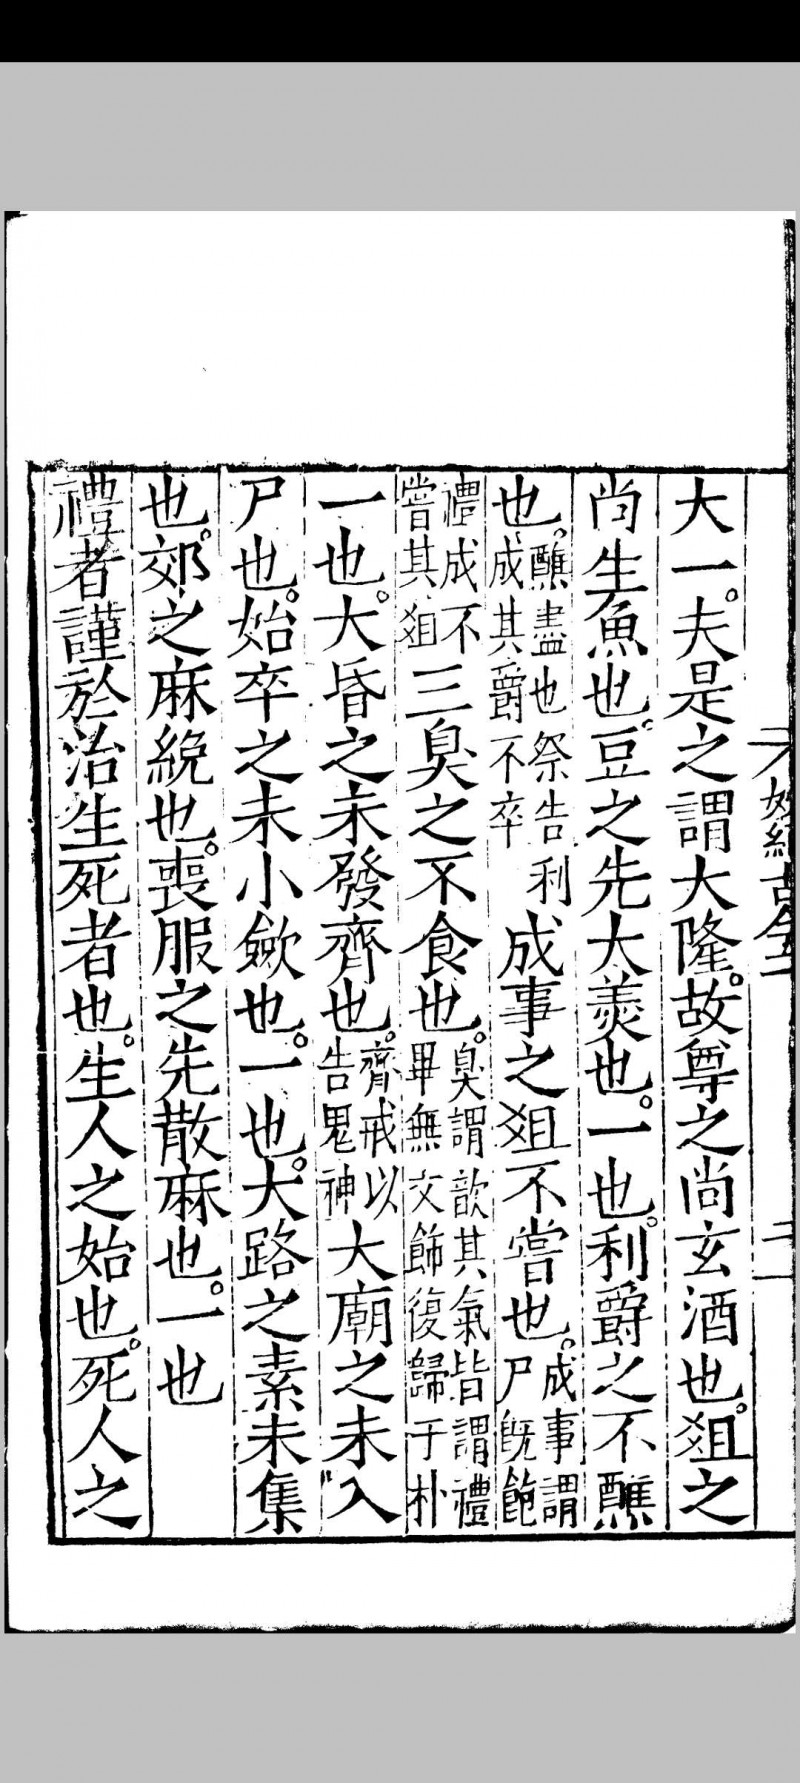 大一。夫是之謂大隆。故尊之尚玄酒也。俎之
尚生魚也。豆之先大羮也。一也。利爵之不醮
也。醮盡也祭告利成其爵不卒成事之俎不嘗也。成事謂尸旣飽
禮成不嘗其俎三臭之不食也。臭謂歆其氣皆謂禮畢無文飾復歸于朴
一也。大昏之未發齊也。齊戒以告鬼神大廟之未入
尸也。始卒之未小歛也。一也。大路之素未集
也。郊之麻絻也。喪服之先散麻也。一也
禮者謹於治生死者也。生人之始也。死人之